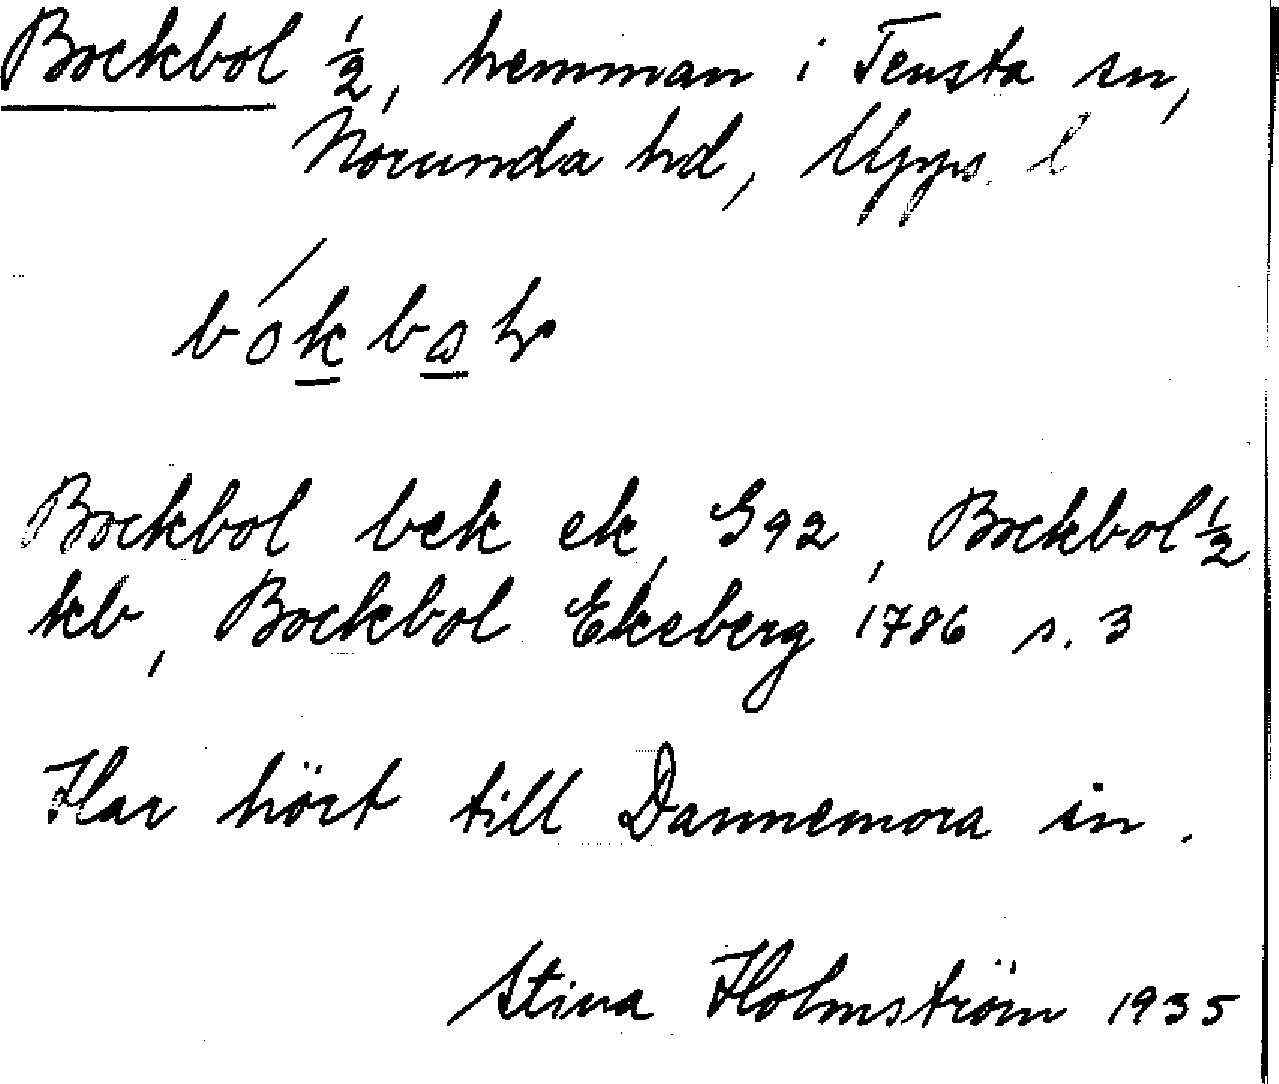 Bockbol ½, hemman i Tensta sn,
Norunda hd, Upps. l
Bockbol bek ek, G92, Bockbol ½
kb, Bockbol Ekeberg 1786 s. 3
Har hört till Dannemora sn.
Stina Holmström 1935